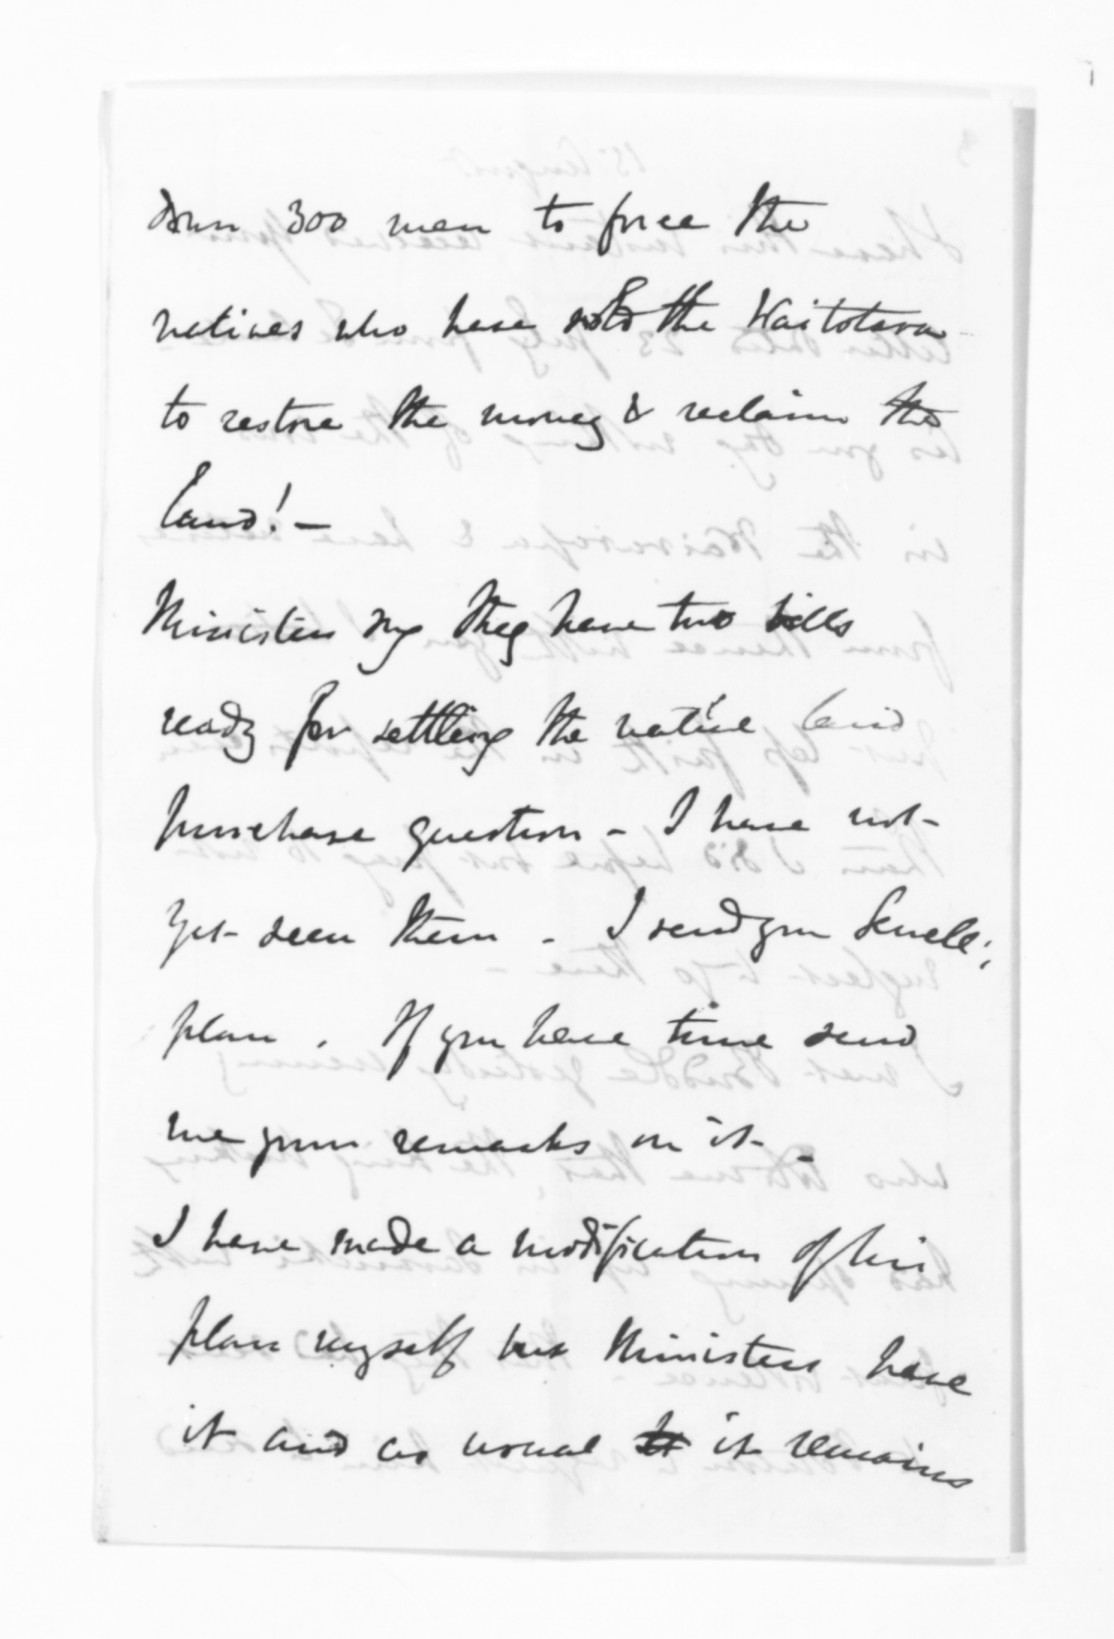 down 300 men to force the
natives who have sold the Waitotara
to restore the money & reclaim the
land! -
Ministers say they have two bills
ready for settling the native land
purchase question - I have not
yet seen them - I send you Sewell's
plan. If you have time send
me your remarks on it -
I have made a modification of his
plan myself but Ministers have
it and as usual it remains